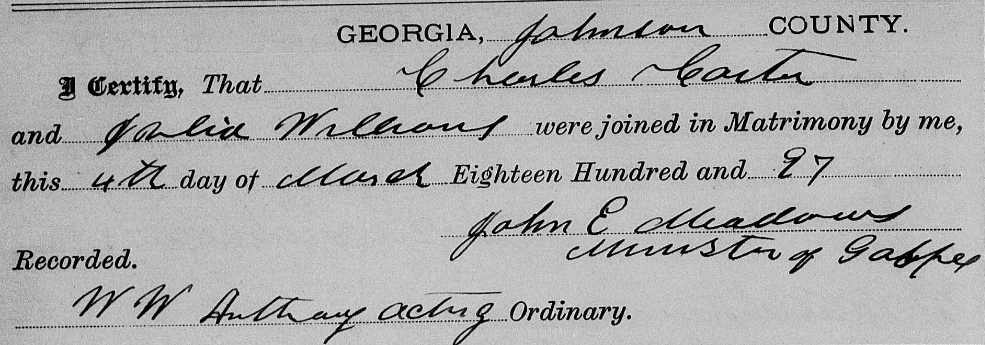 GEORGIA, Johnson COUNTY.
I Certify, That Charles Carter
and Julia Williams were joined in Matrimony by me,
this 4th day of March Eighteen Hundred and 97
John E Meadows
Minister of Gospel
Recorded.
W W Anthony acting Ordinary.